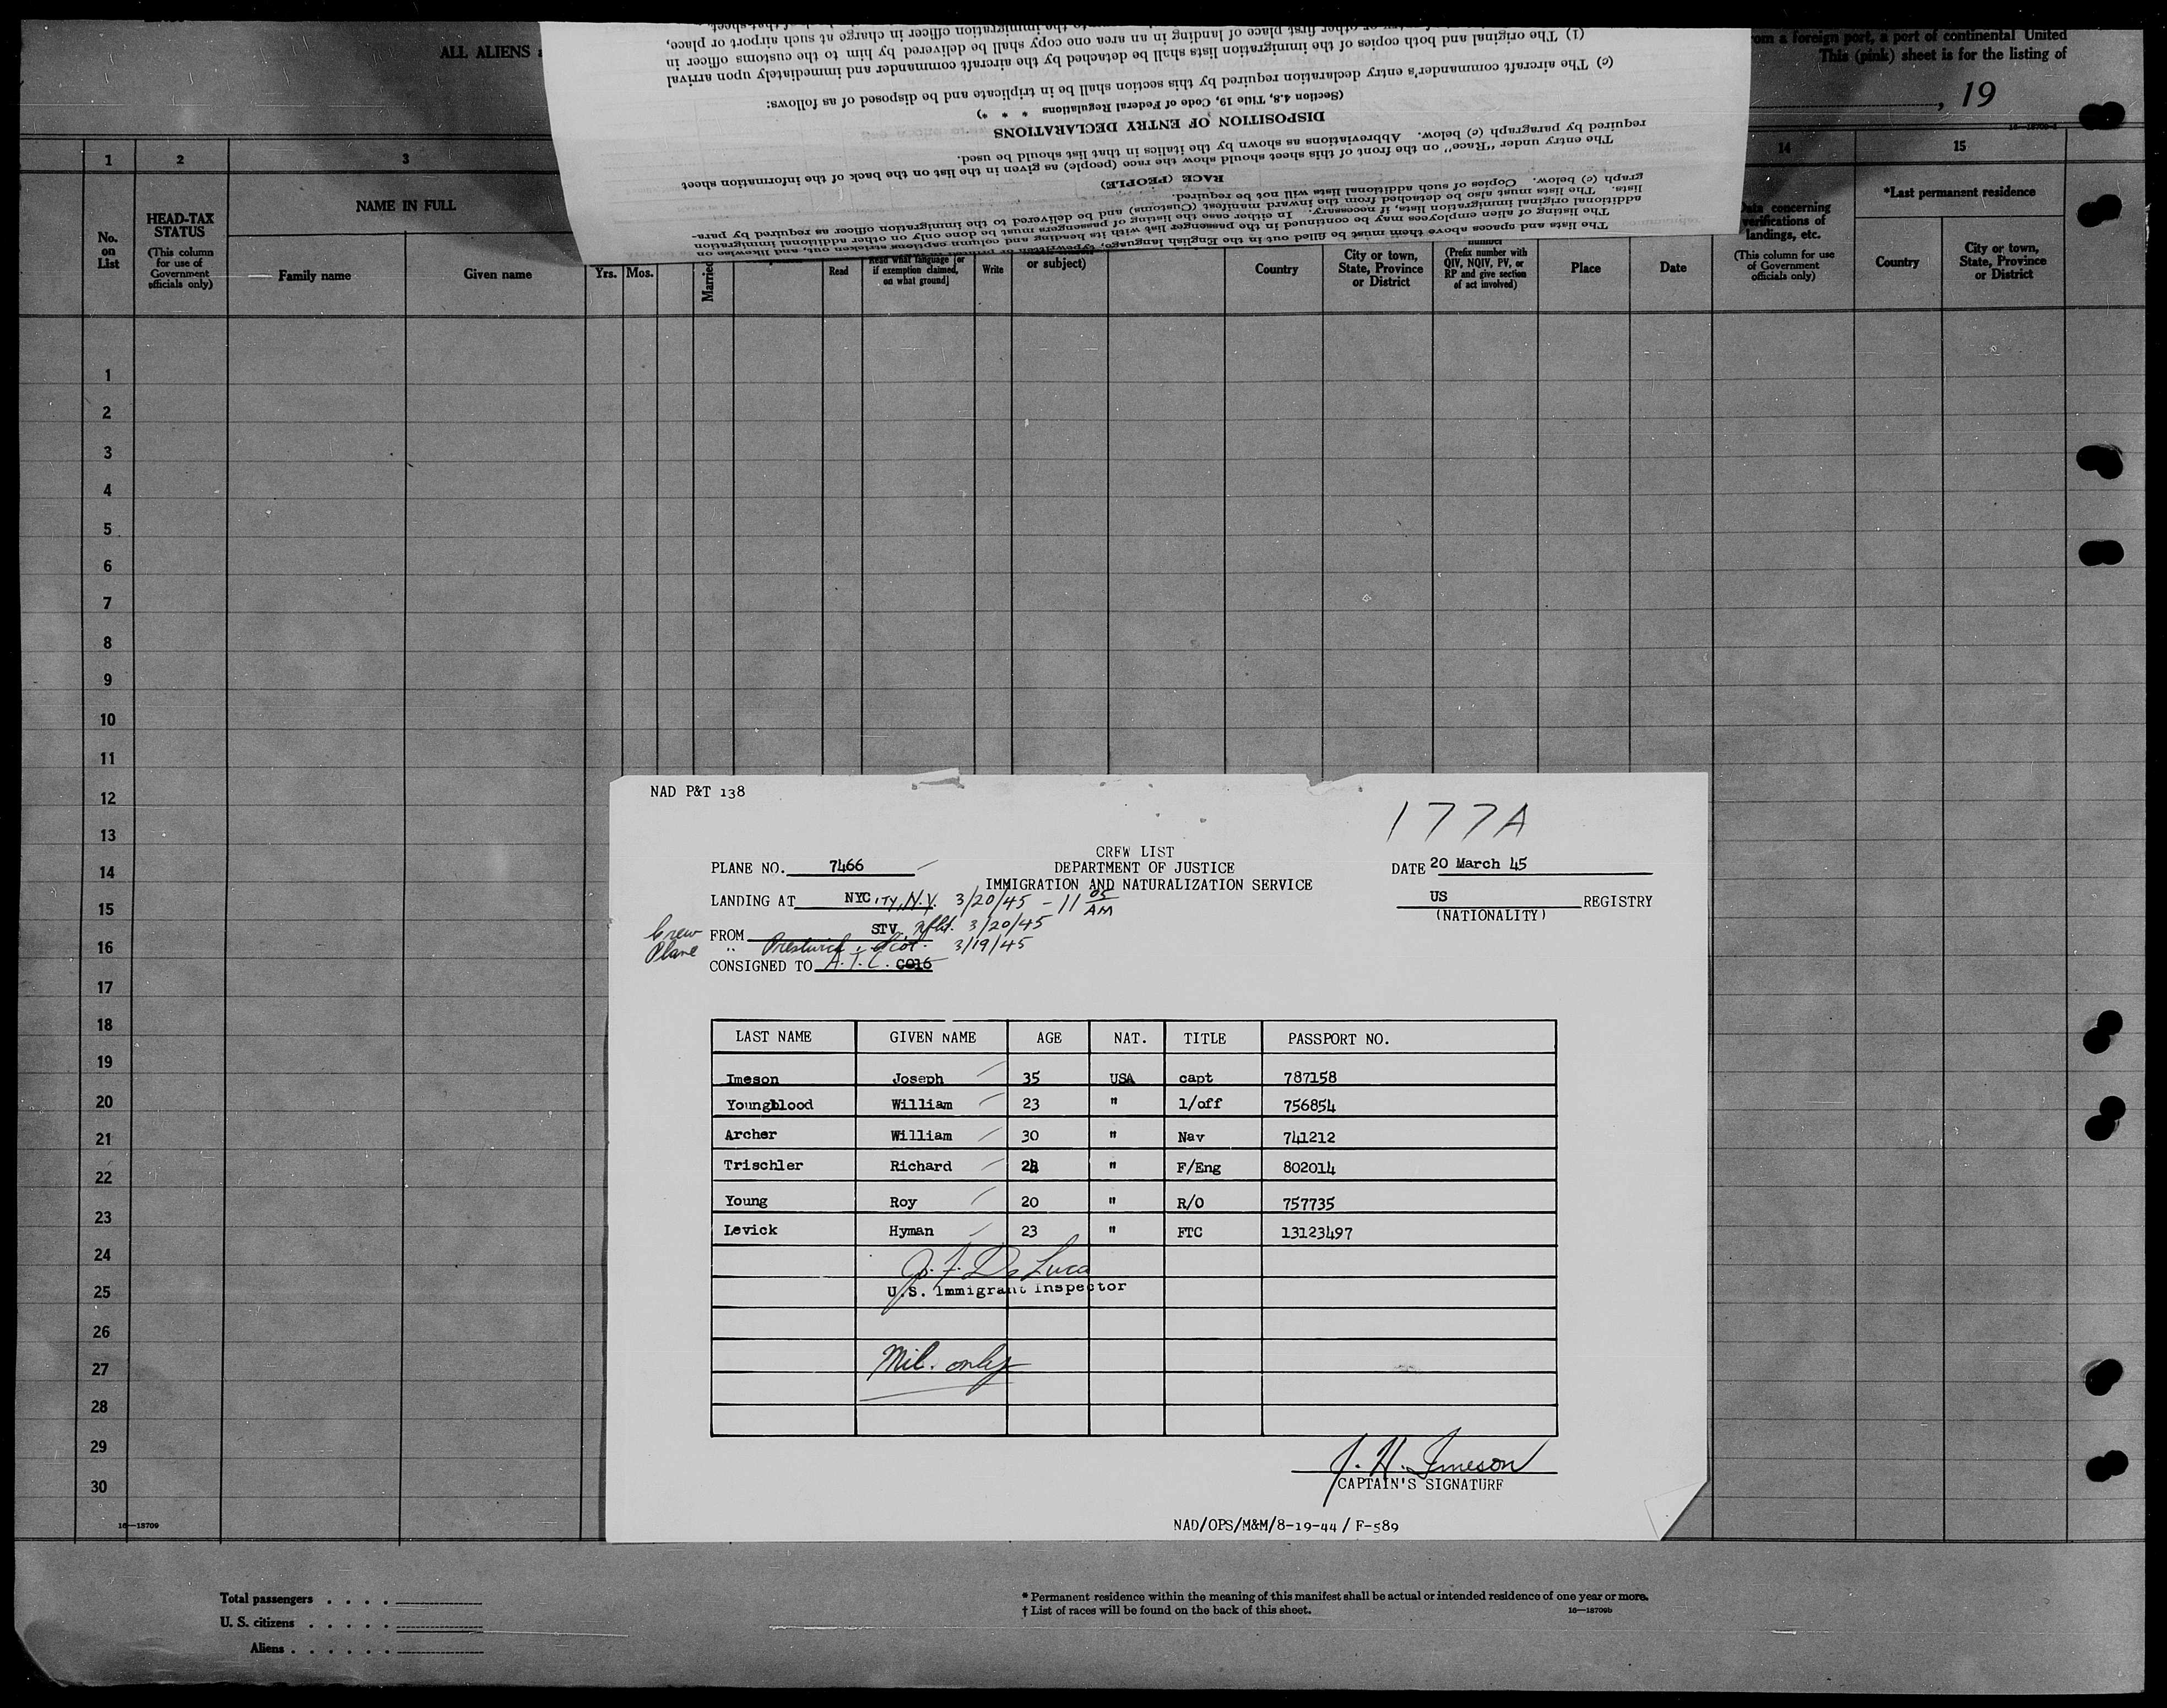 ALL ALIENS
from a foreign port, a port of continental United
This (pink) sheet is for the listing of
, 19
(1) The original and both copies of the immigration lists shall be detached by the aircraft commander and immediately upon arrival
the immigration officer in charge at such airport or place,
or other first place of landing in an area one copy shall be delivered by him to the customs officer in
(c) The aircraft commander's entry declaration required by this section shall be in triplicate and be disposed of as follows:
(Section 4.8, Title 19, Code of Federal Regulations * * *)
DISPOSITION OF ENTRY DECLARATIONS
required by paragraph (c) below. Abbreviations as shown by the italics in that list should be used.
The entry under "Race" on the front of this sheet should show the race (people) as given in the list on the back of the information sheet
RACE (PEOPLE)
graph (c) below. Copies of such additional lists will not be required.
lists. The lists must also be detached from the inward manifest (Customs) and be delivered to the immigration officer as required by para-
additional original immigration lists, if necessary. In either case the listing of passengers must be done only on other additional immigration
The listing of alien employees may be continued in the passenger list with its heading and column captions stricken out, and likewise on
The lists and spaces above them must be filled out in the English language,
1 2 3 14 15
No. on List
HEAD-TAX STATUS
(This column for use of Government officials only)
NAME IN FULL
Family name
Given name
Yrs. Mos.
Married
Read
Read what language [or if exemption claimed, on what ground]
Write
or subject)
Country
City or town, State, Province or District
number
(Prefix number with QIV, NQIV, PV, or RP and give section of act involved)
Place
Date
Data concerning verifications of landings, etc.
(This column for use of Government officials only)
*Last permanent residence
Country
City or town, State, Province or District
1
2
3
4
5
6
7
8
9
10
11
12
13
14
15
16
17
18
19
20
21
22
23
24
25
26
27
28
29
30
16—18709
NAD P&T 138
177A
CREW LIST
PLANE NO. 7466 DEPARTMENT OF JUSTICE DATE 20 March 45
IMMIGRATION AND NATURALIZATION SERVICE
LANDING AT NYCITY, N.Y. 3/20/45 - 11 05 AM US REGISTRY
(NATIONALITY)
Crew FROM STV. Nfld. 3/20/45
Plane " Prestwick, Scot. 3/19/45
CONSIGNED TO A.T.C. C016
LAST NAME GIVEN NAME AGE NAT. TITLE PASSPORT NO.
Imeson Joseph 35 USA capt 787158
Youngblood William 23 " 1/off 756854
Archer William 30 " Nav 741212
Trischler Richard 24 " F/Eng 802014
Young Roy 20 " R/O 757735
Levick Hyman 23 " FTC 13123497
J. F. De Luca
U.S. Immigrant Inspector
Mil. only
J. H. Imeson
CAPTAIN'S SIGNATURE
NAD/OPS/M&M/8-19-44 / F-589
Total passengers . . . .
U. S. citizens . . . . .
Aliens . . . . . .
* Permanent residence within the meaning of this manifest shall be actual or intended residence of one year or more.
† List of races will be found on the back of this sheet.
16—18709b